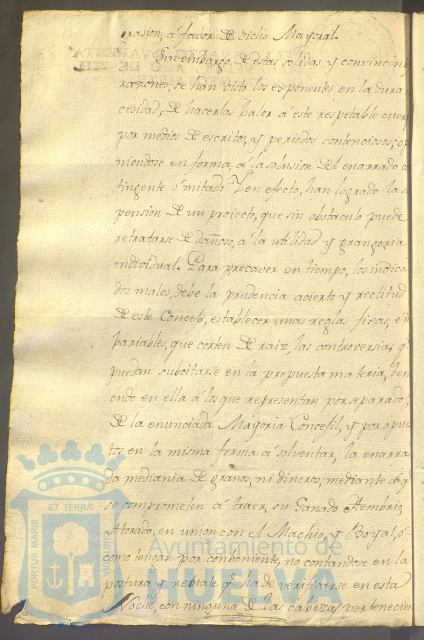 orasion, á favor, de dicho Mayoral.
Sin embargo de estas solidas y convincent
razones, se han visto los exponentes en la dura
cesidad, de hacerlas baler á este respetable cuer
por medios de escritos, y periodos contenciosos; o
niendose en forma, á la solusion del enarrado
tingente ó mitad: Y en efecto, han logrado la
pension de un proiecto, que sin obstaculo puede
retratarse de dañoso, a la utilidad y grangeria
individual. Para precaver en tiempo, los indica
dos males, debe la prudencia acierto y rectitud
de este Concejo, establecer unas reglas fixas, é in
bariables, que corten de raiz, las controversias q
puedan subcitarse en la propuesta materia, ten
endo en ella á los que representan por separado,
de la enunciada Mayoria Concegil, y por opues
tos en la misma forma á solventar, la enarra
da mediania de granos, ni dineros, mediante á q
se comprometen á traer, su Ganado Hembrio
Atorado, en union con el Machio, y Boyal, ó
como tengan por combeniente, no contandose en la
postura y remate q ha de verificarse en esta
Noche, con ninguna de las cabezas pertenecien
ET TERRÆ
PORTUS MARIS
Ayuntamiento de
HUELVA